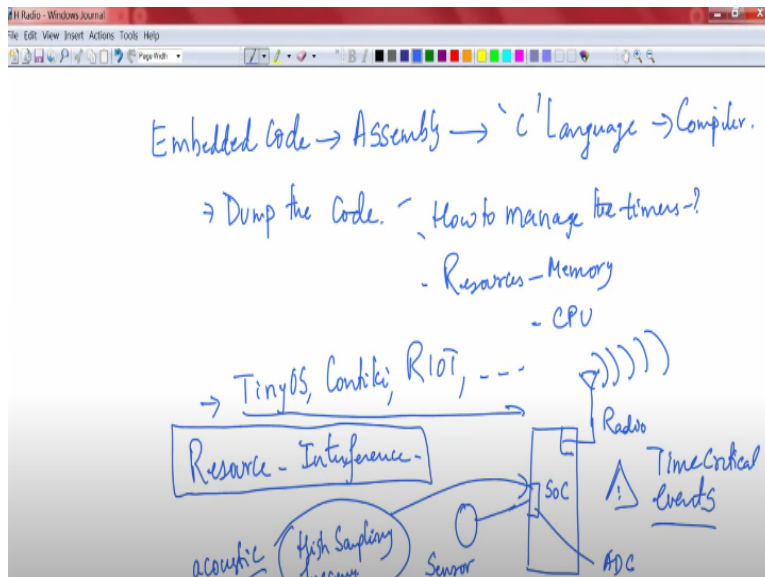 H Radio - Windows Journal
File Edit View Insert Actions Tools Help
Page Width
Embedded Code → Assembly → 'C' Language → Compiler.
→ Dump the Code. - How to manage the timers-?
- Resources - Memory
- CPU
→ TinyOS, Contiki, RIOT, ---
Radio
Resource - Interference -
SoC
Time Critical
events
acoustic
High Sampling
Sensor
ADC